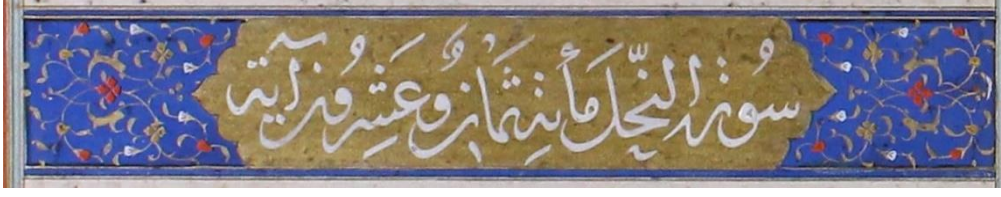 سُورَة النَّحل مَأية وثمانٌ وعَشرُونَ آية